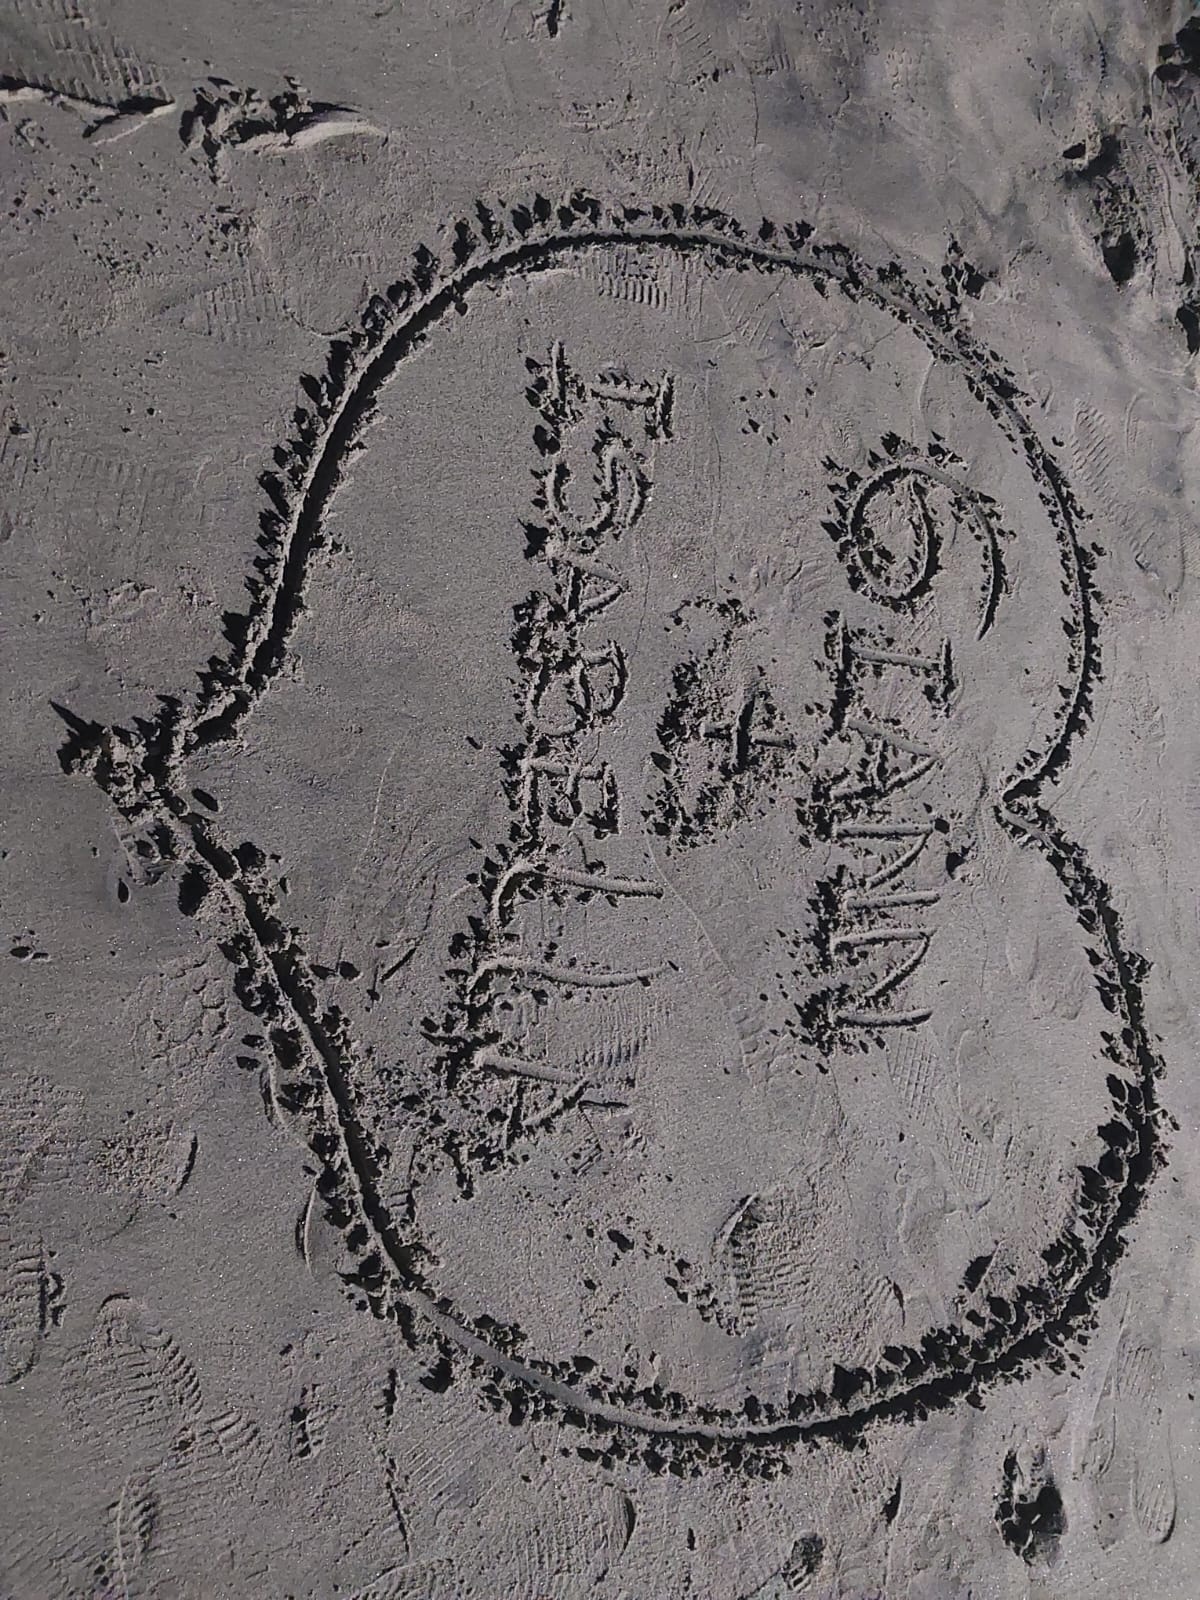 GIANNI
+
ISABELLA